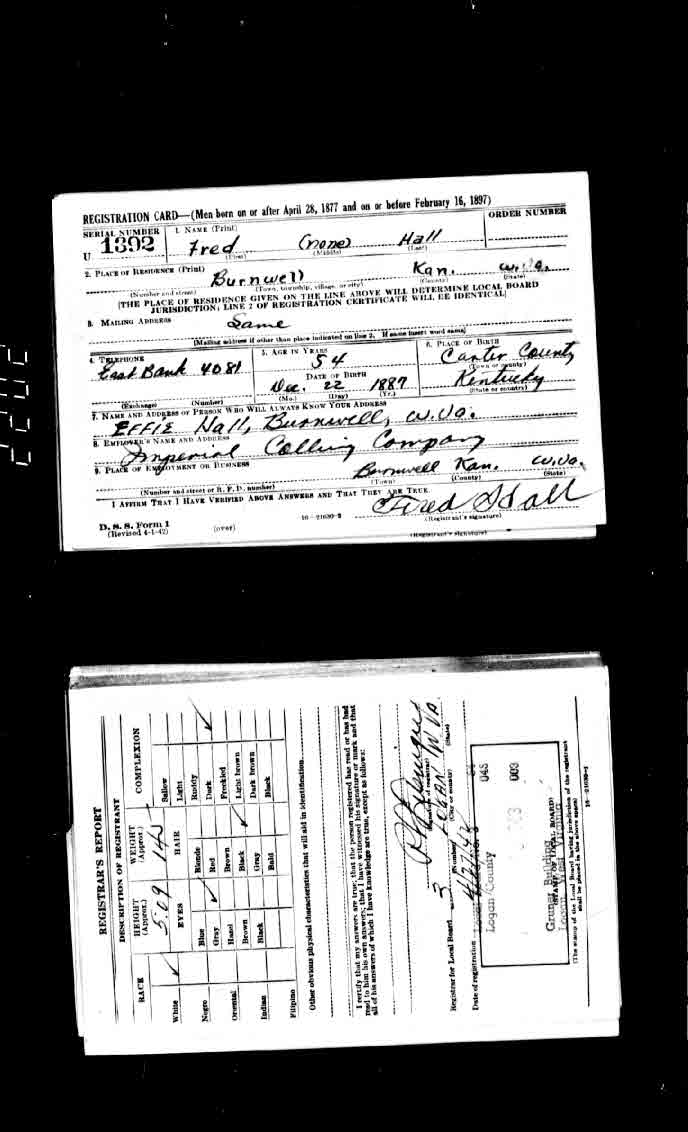 REGISTRATION CARD—(Men born on or after April 28, 1877 and on or before February 16, 1897)
SERIAL NUMBER 1. NAME (Print) ORDER NUMBER
U 1392 Fred (none) Hall
(First) (Middle) (Last)
2. PLACE OF RESIDENCE (Print)
Burnwell Kan. W.Va.
(Number and street) (Town, township, village, or city) (County) (State)
[THE PLACE OF RESIDENCE GIVEN ON THE LINE ABOVE WILL DETERMINE LOCAL BOARD
JURISDICTION; LINE 2 OF REGISTRATION CERTIFICATE WILL BE IDENTICAL]
3. MAILING ADDRESS
Same
[Mailing address if other than place indicated on line 2. If same insert word same]
4. TELEPHONE 5. AGE IN YEARS 6. PLACE OF BIRTH
East Bank 4081 54 Carter County
DATE OF BIRTH (Town or county)
Dec. 22 1887 Kentucky
(Exchange) (Number) (Mo.) (Day) (Yr.) (State or country)
7. NAME AND ADDRESS OF PERSON WHO WILL ALWAYS KNOW YOUR ADDRESS
EFFIE Hall, Burnwell, W.Va.
8. EMPLOYER'S NAME AND ADDRESS
Imperial Colling Company
9. PLACE OF EMPLOYMENT OR BUSINESS
Burnwell Kan. W.Va.
(Number and street or R. F. D. number) (Town) (County) (State)
I AFFIRM THAT I HAVE VERIFIED ABOVE ANSWERS AND THAT THEY ARE TRUE.
Fred Hall
D. S. S. Form 1
(Revised 4-1-42) (over) 16—21630-2 (Registrant's signature)
(Registrant's signature)
REGISTRAR'S REPORT
DESCRIPTION OF REGISTRANT
RACE HEIGHT (Approx.) WEIGHT (Approx.) COMPLEXION
5.09 145
White EYES HAIR
Sallow
Light
Negro Blue Blonde Ruddy
Gray Red Dark
Oriental Hazel Brown Freckled
Brown Black Light brown
Indian Black Gray Dark brown
Bald Black
Filipino
Other obvious physical characteristics that will aid in identification
I certify that my answers are true; that the person registered has read or has had
read to him his own answers; that I have witnessed his signature or mark and that
all of his answers of which I have knowledge are true, except as follows:
(Signature of registrar)
Registrar for Local Board 3 LOGAN W. VA.
(Number) (City or county) (State)
Date of registration 4/27/42
Logan County 045 003
Gruner Building
STAMP OF LOCAL BOARD
Logan, West Virginia
(The stamp of the Local Board having jurisdiction of the registrant
shall be placed in the above space)
16—21630-1